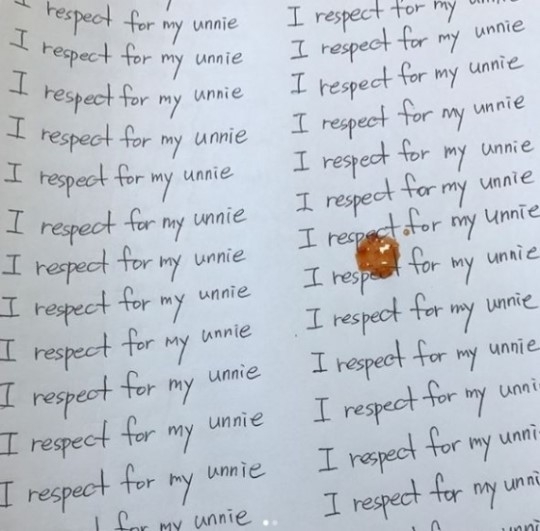 I respect for my unnie
I respect for my unnie
I respect for my unnie
I respect for my unnie
I respect for my unnie
I respect for my unnie
I respect for my unnie
I respect for my unnie
I respect for my unnie
I respect for my unnie
I respect for my unnie
I respect for my unnie
for my unnie
I respect for my
I respect for my unnie
I respect for my unnie
I respect for my unnie
I respect for my unnie
I respect for my unnie
I respect for my unnie
I respect for my unnie
I respect for my unnie
I respect for my unnie
I respect for my unni
I respect for my unni
I respect for my unni